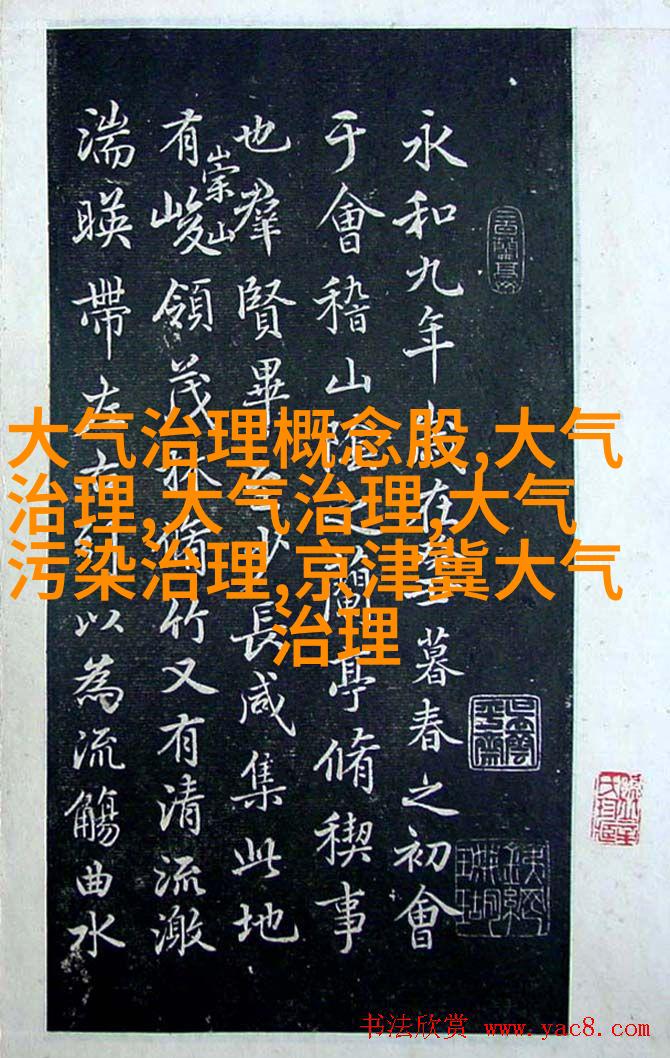 永和九年歲在癸丑暮春之初會
于會稽山陰之蘭亭脩稧事
也羣賢畢至少長咸集此地
有崇山峻領茂林脩竹又有清流激
湍暎帶左右引以為流觴曲水
大气治理概念股,大气
治理,大气治理,大气
污染治理,京津冀大气
治理
书法欣赏 www.yac8.com